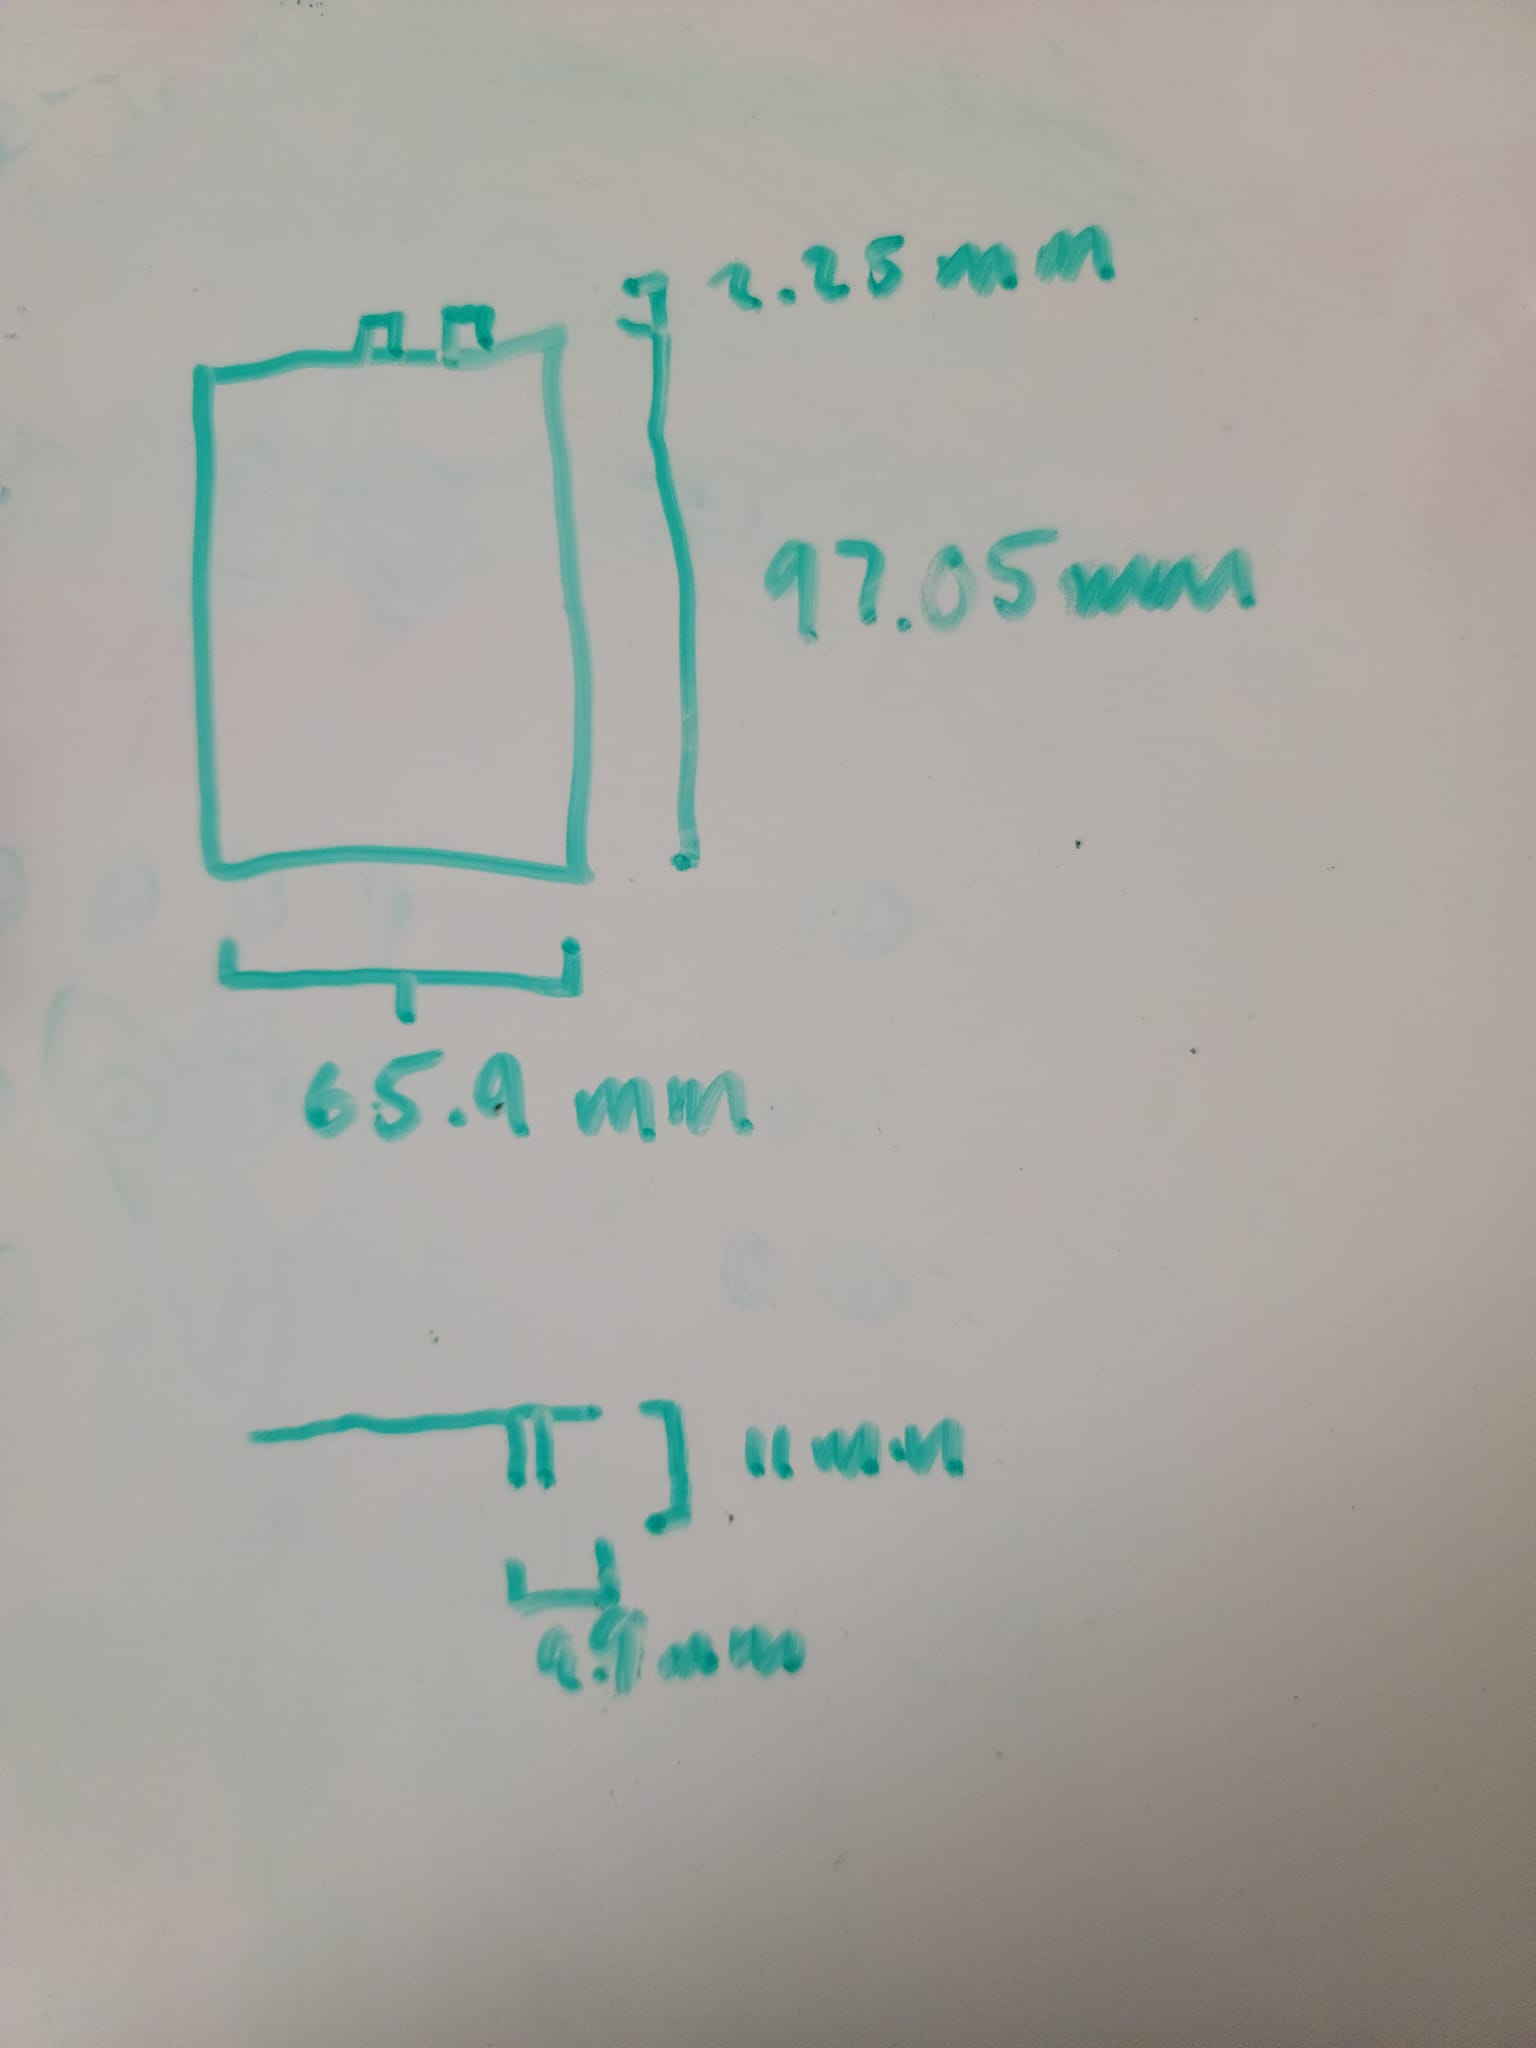 2.25 mm
97.05 mm
65.9 mm
11 mm
9.9 mm